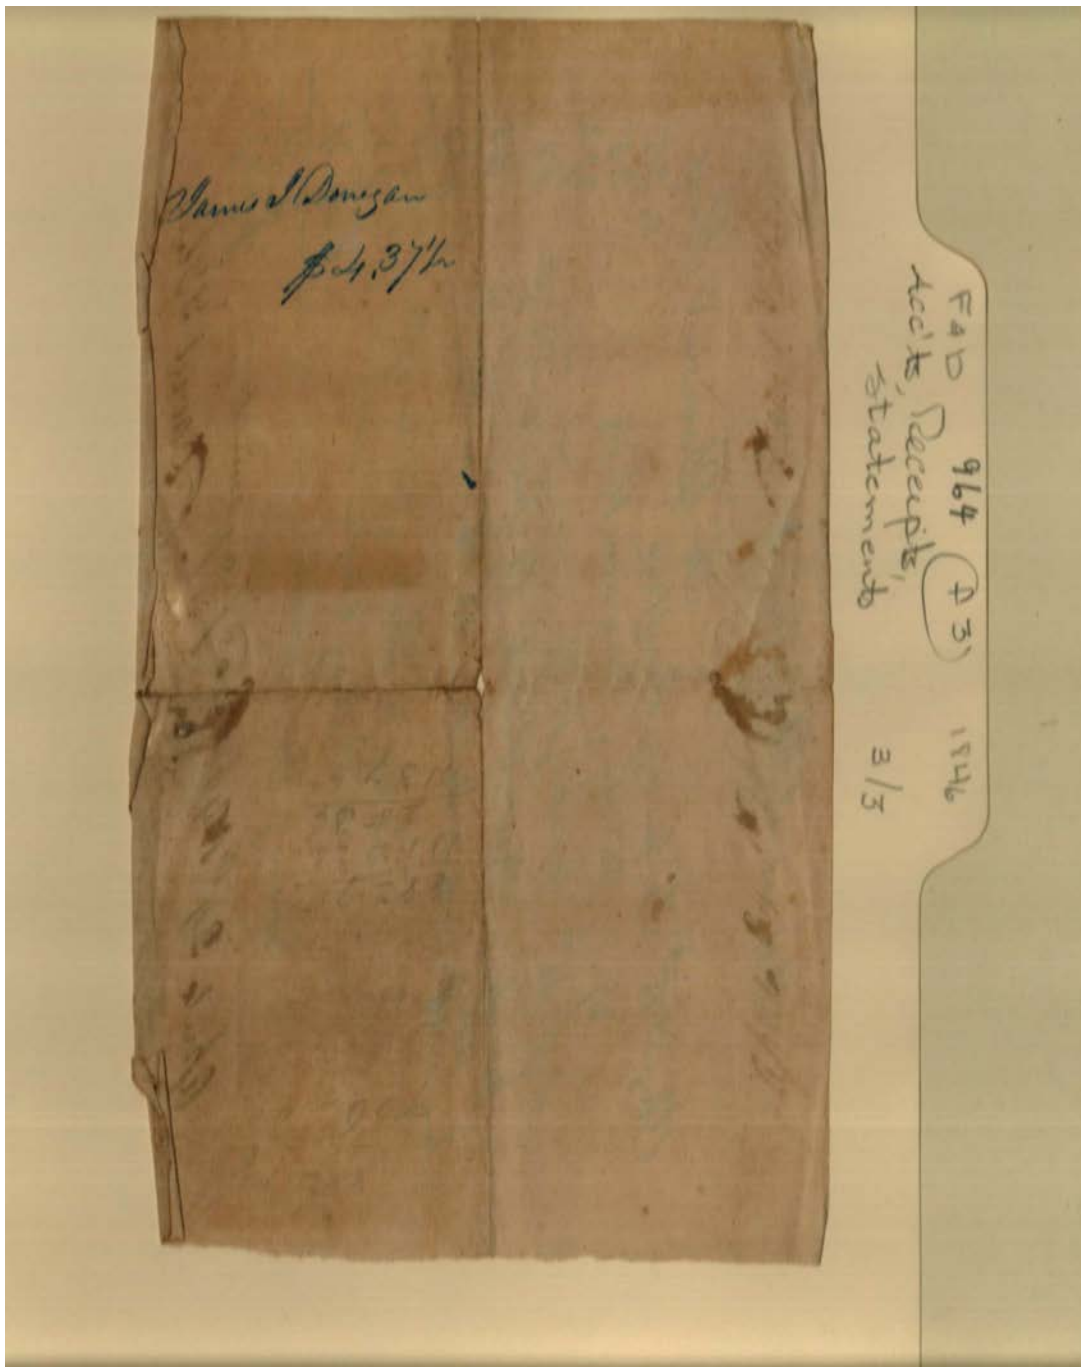 James J Donegan
$4.37½
F&D 964 (P3) 1846
Acc'ts, Receipts,
Statements 3/3